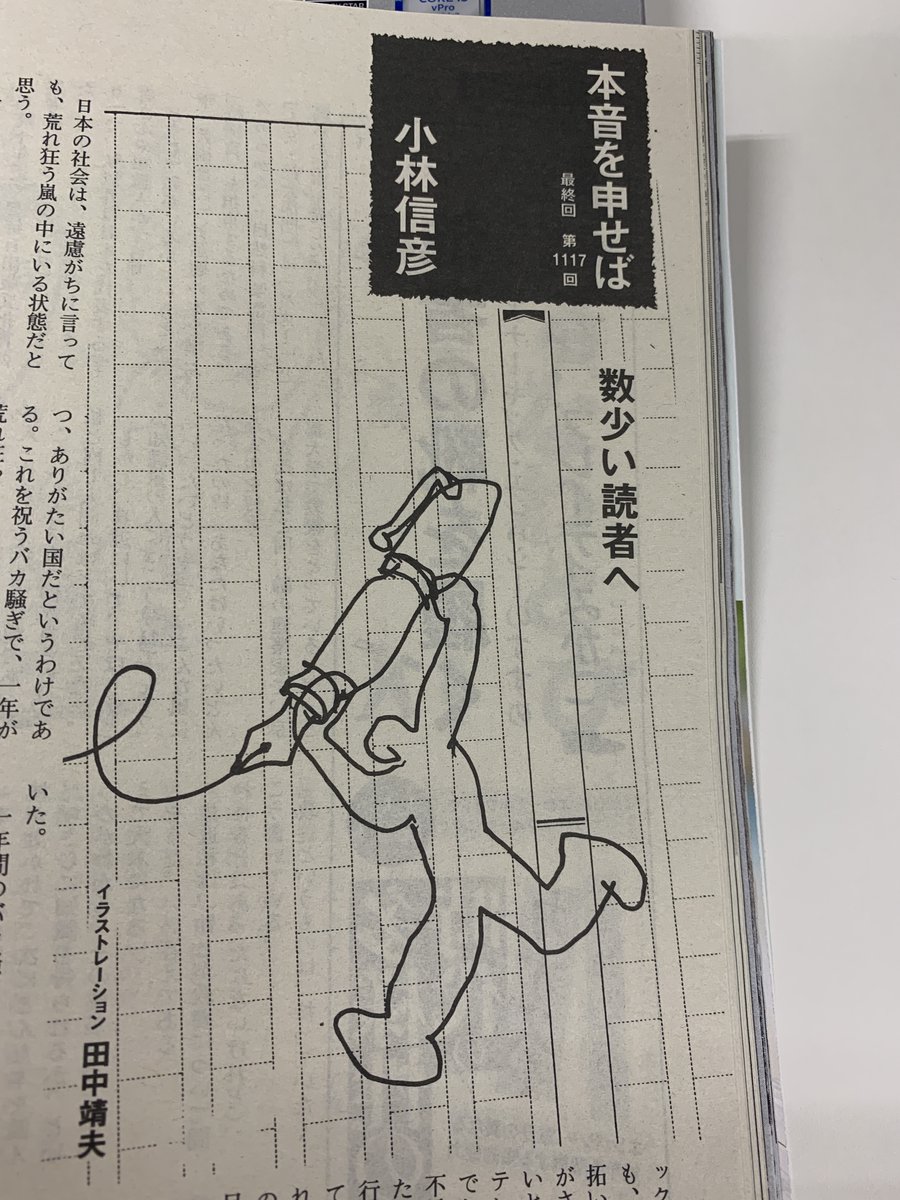 vPro
本音を申せば
最終回 第1117回
小林信彦
数少い読者へ
日本の社会は、遠慮がちに言って
も、荒れ狂う嵐の中にいる状態だと
思う。
つ、ありがたい国だというわけであ
る。これを祝うバカ騒ぎで、一年が
いた。
一年間の
イラストレーション 田中靖夫
ック
も、
拓い